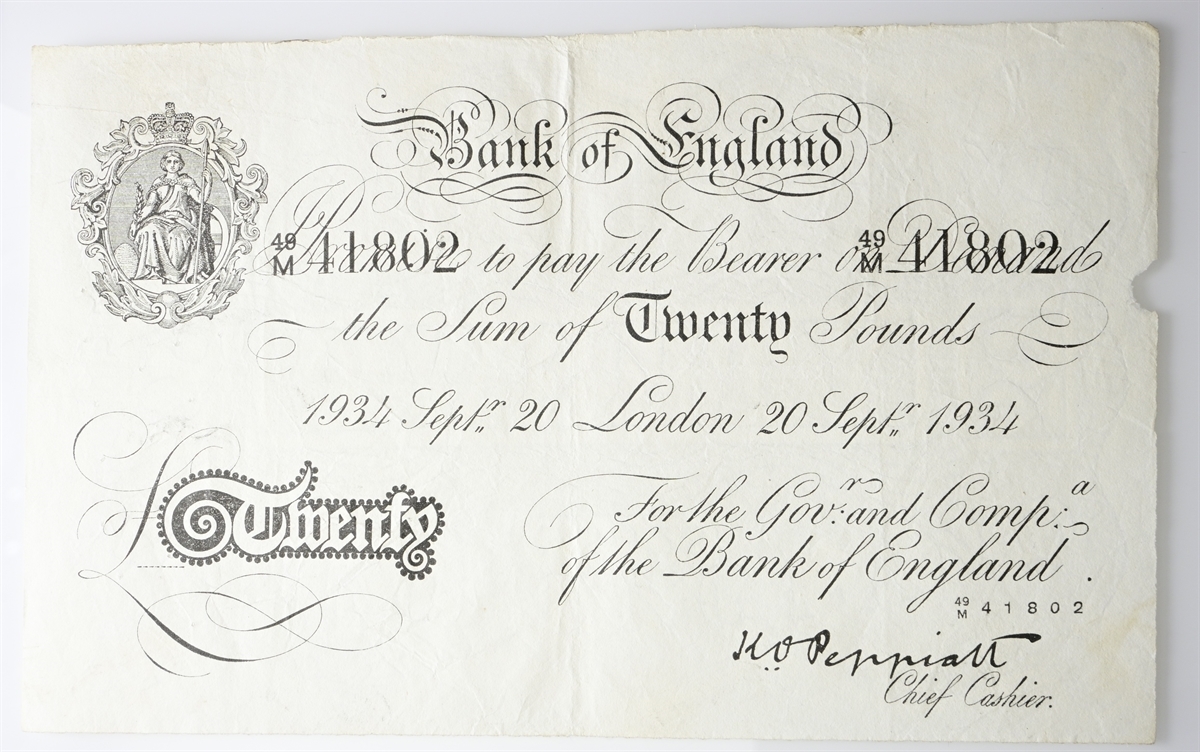 Bank of England
49/M 41802 Promise to pay the Bearer on Demand 49/M 41802
the Sum of Twenty Pounds
1934 Septr 20 London 20 Septr 1934
£Twenty
For the Govr: and Compa:
of the Bank of England.
49/M 41802
K.O. Peppiatt
Chief Cashier.